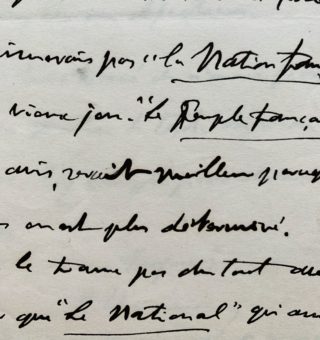 pas "la Nation fran
"Le Peuple França
avis, serait meilleur parceq
est plus déterminé.
le trouve pas du tout au
que "Le National" qui